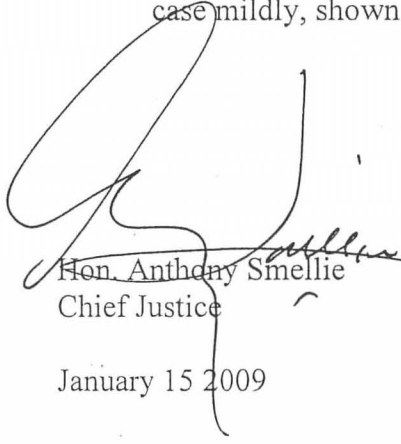 case mildly, shown
Hon. Anthony Smellie
Chief Justice
January 15 2009